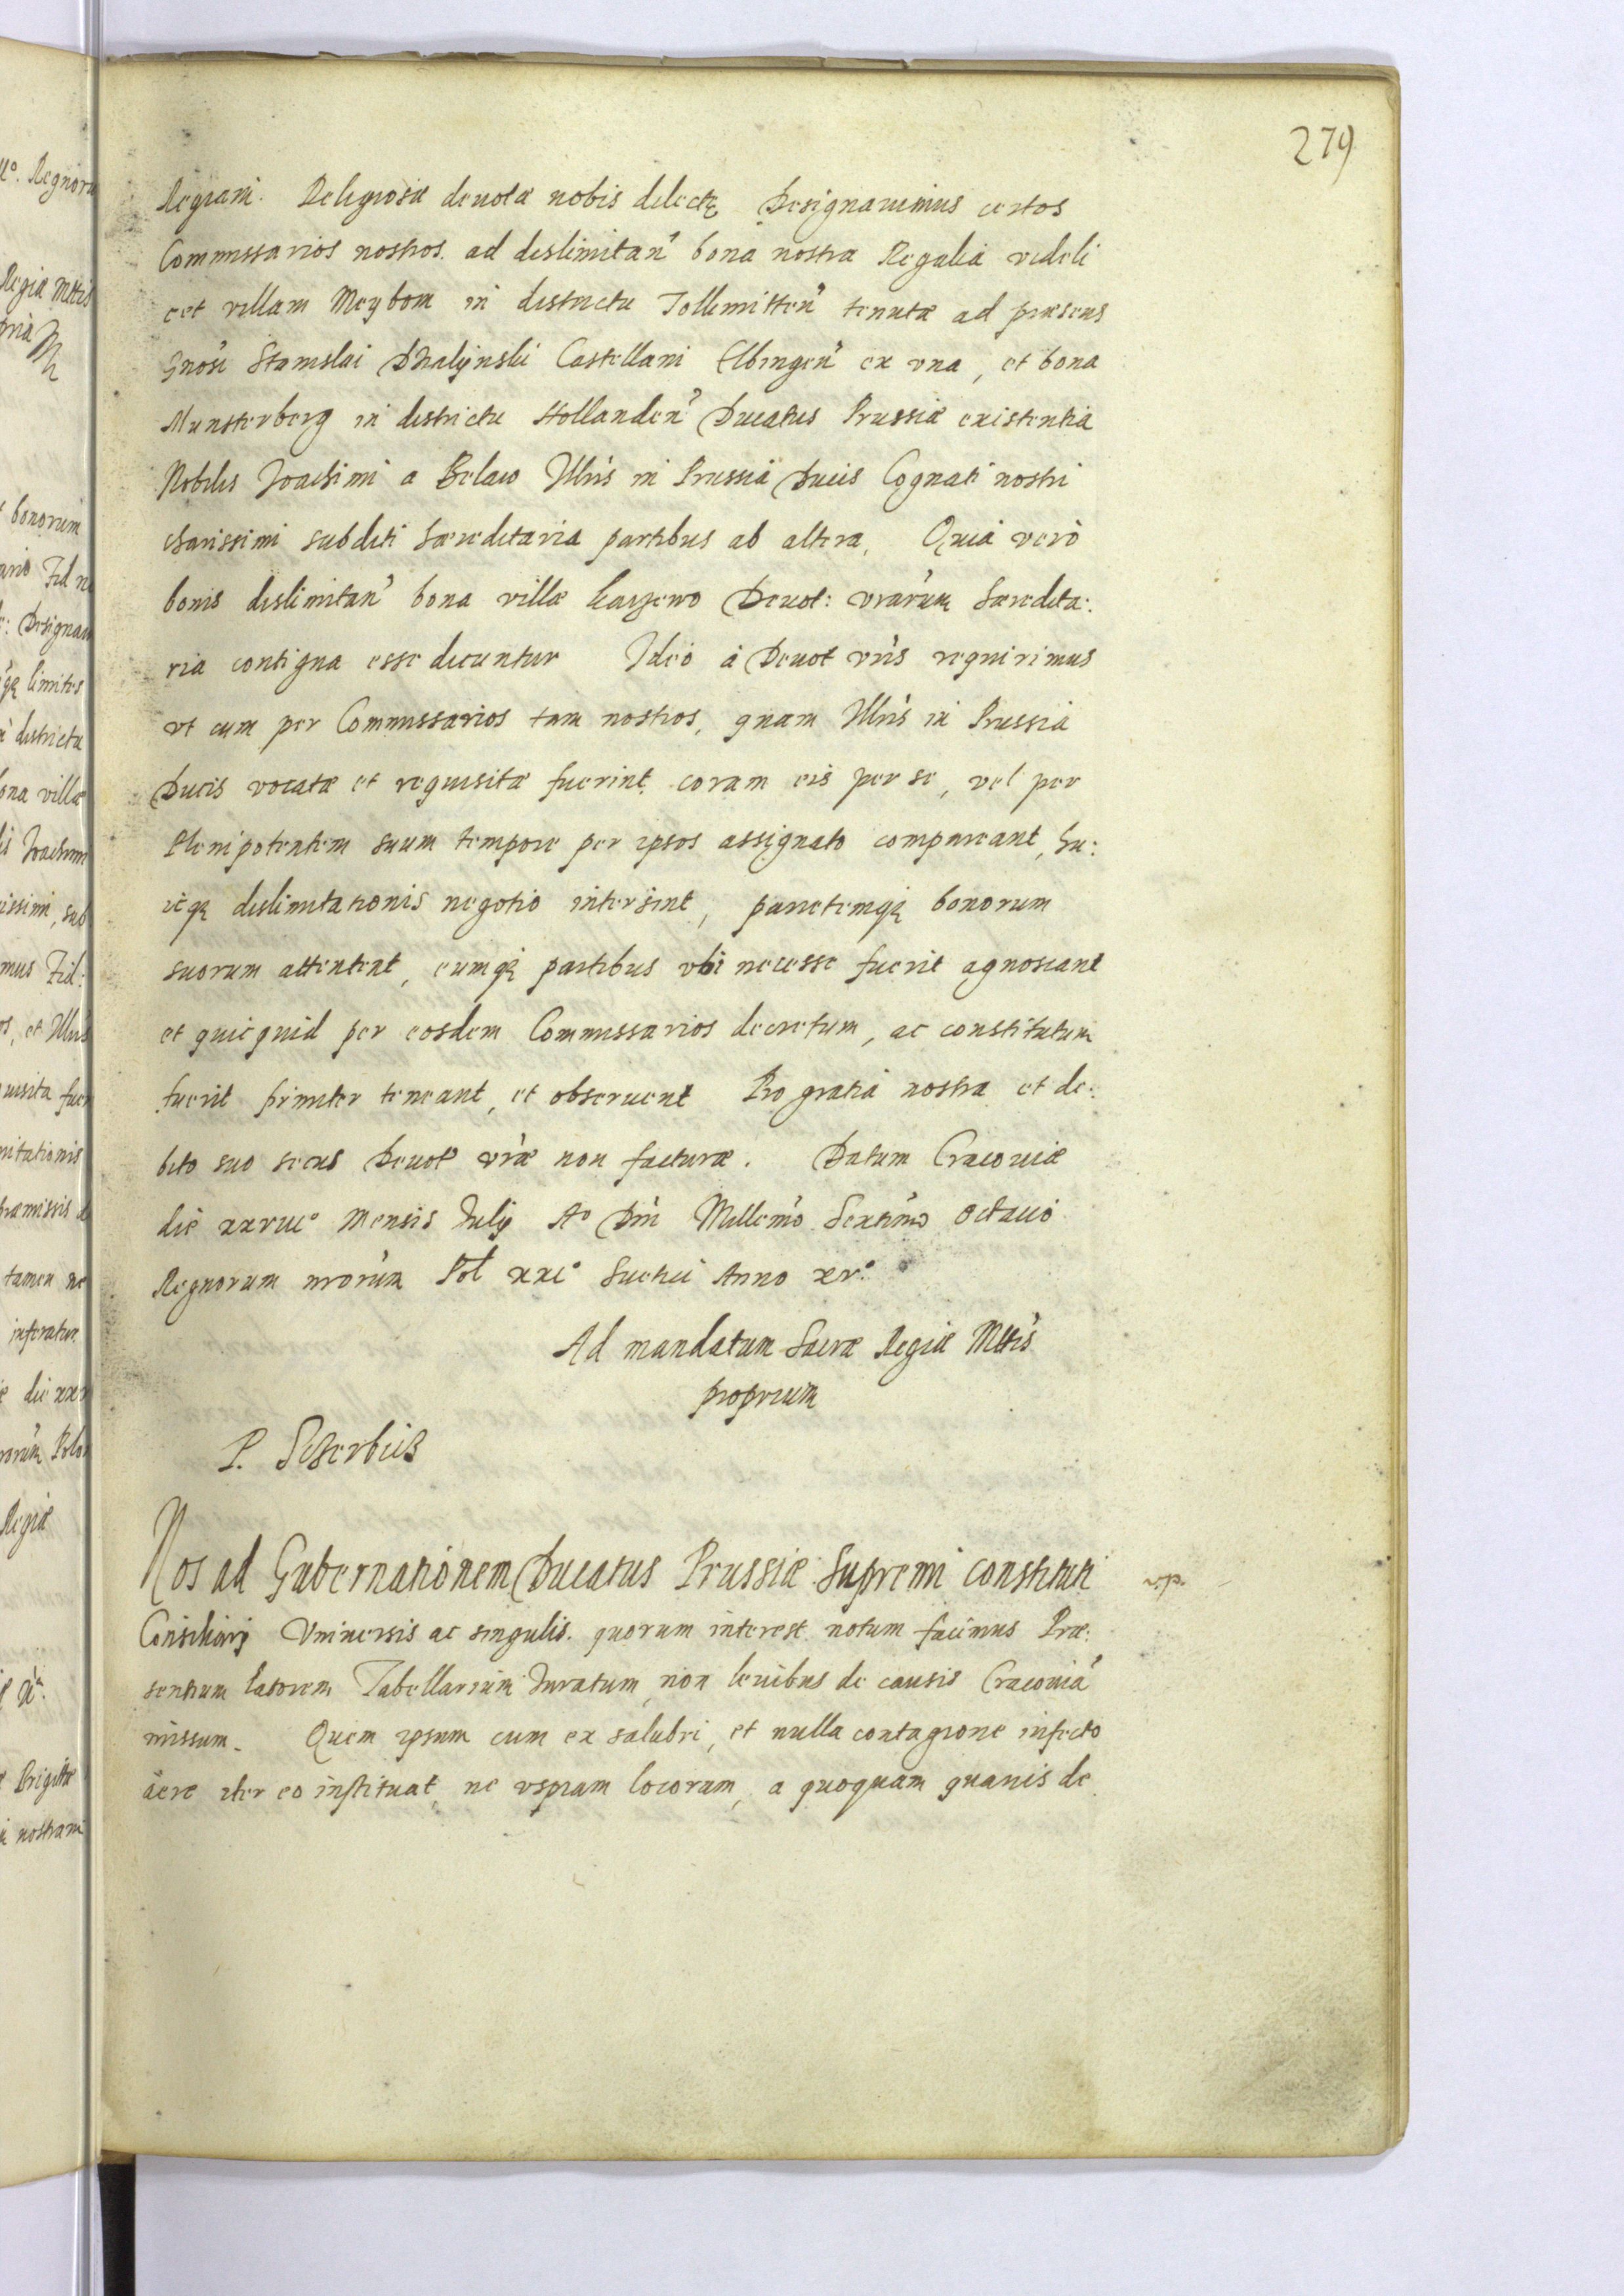 279
Regiam. Religiosæ deuotæ nobis delectę Designauimus certos
Commissarios nostros. ad dislimitan' bona nostra Regalia videli
cet villam Meybom in districtu Tollimitten' tenutæ ad præsens
Gnosi Stanislai Dzialÿnski Castellani Elbingen' ex vna, et bona
Munsterberg in districtu Hollanden' Ducatus Prussiæ existentia
Nobilis Joachimi a Belaw Illris in Prussia Ducis Cognati nostri
charissimi subditi hæreditaria partibus ab altera, Quia verò
bonis dislimitan' bona villæ Deuot: vrarum hæredita:
ria contigua esse dicuntur Ideo à Deuot vris requirimus
vt cum per Commissarios tam nostros, quam Illris in Prussia
Ducis vocatæ et requisitæ fuerint coram eis per se, vel per
Plenipotentem suum tempore per ipsos assignato compareant, hu:
icqȝ dislimitationis negotio intersint, bonorum
suorum attentent, eumqȝ partibus vbi necesse fuerit agnoscant
et quicquid per eosdem Commissarios decretum, ac constitutum
fuerit firmiter teneant, et obseruent Pro gratia nostra et de:
bito suo secus Deuot vræ non facturæ. Datum Cracouiæ
die xxviiº Mensis Julÿ Aº Dni Millemo Sextmo octauo
Regnorum nrorum Pol xxiº Suetici Anno xvº
Ad mandatum Sacræ Regiæ Mttis
proprium
P. Sczerbicz
Nos ad Gubernationem Ducatus Prussiæ Supremi constituti
Consiliarÿ Vniuersis ac singulis. quorum interest notum facimus Præ:
sentium latorem Tabellarium Juratum, non leuibus de causis Cracouia'
missum. Quem ipsum cum ex salubri, et nulla contagione infecto
aëre iter eo instituat, ne vspiam locorum, a quoquam quauis de